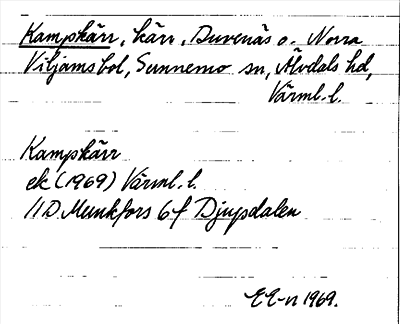 Kampskärr, kärr, Duvenäs o. Norra
Viljamsbol, Sunnemo sn, Älvdals hd,
Värml. l.
Kampskärr
ek (1969) Värml. l.
11D Munkfors 6f Djupdalen
EE-n 1969.